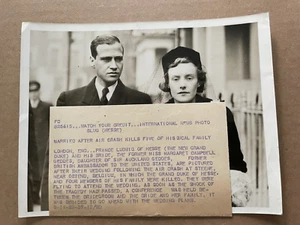 TO
WATCH YOUR CREDIT...INTERNATIONAL NEWS PHOTO
SLUG (HESSE)
MARRIED AFTER AIR CRASH KILLS FIVE OF HIS FAMILY
LONDON, ENG...PRINCE LUDWIG OF HESSE (THE NEW GRAND
DUKE) AND HIS BRIDE, THE FORMER MISS MARGARET CAMPBELL
GEDDES, DAUGHTER OF SIR AUCKLAND GEDDES, FORMER
BRITISH AMBASSADOR TO THE UNITED STATES, ARE PICTURED
AFTER THEIR WEDDING FOLLOWING THE AIR CRASH AT
NEAR BELGIUM, IN WHICH THE GRAND DUKE OF HESSE
AND FOUR MEMBERS OF HIS FAMILY WERE KILLED. THEY WERE
FLYING TO ATTEND THE WEDDING. AS SOON AS THE SHOCK OF
THE TRAGEDY HAD PASSED, A CONFERENCE WAS HELD BE-
TWEEN THE BRIDEGROOM AND THE BRIDE AND HER FAMILY. IT
WAS DECIDED TO GO AHEAD WITH THE WEDDING PLANS.